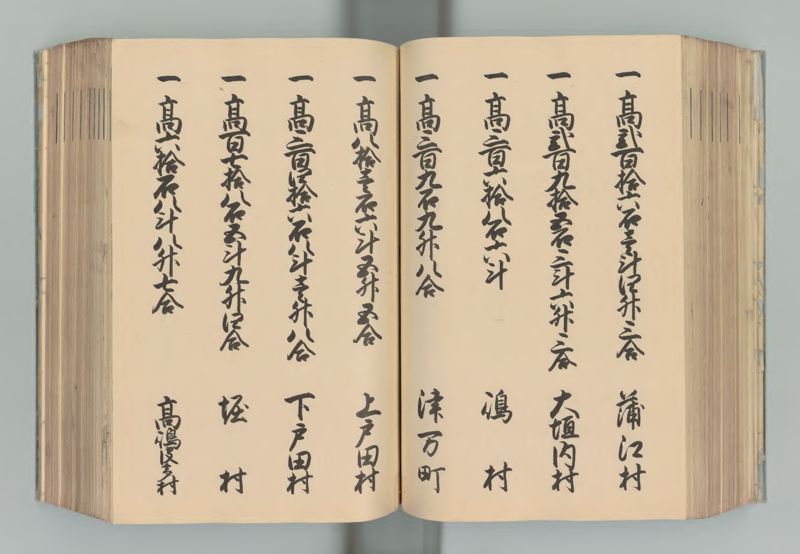 一 高弐百拾六石壱斗四升三合 蒲江村
一 高弐百九拾五石三斗六升三合 大垣内村
一 高三百六拾八石六斗 嶋村
一 高三百九石九升八合 津万町
一 高八拾壱石六斗五升五合 上戸田村
一 高三百四拾六石八斗壱升八合 下戸田村
一 高百七拾八石五斗九升四合 堀村
一 高六拾石八斗八升七合